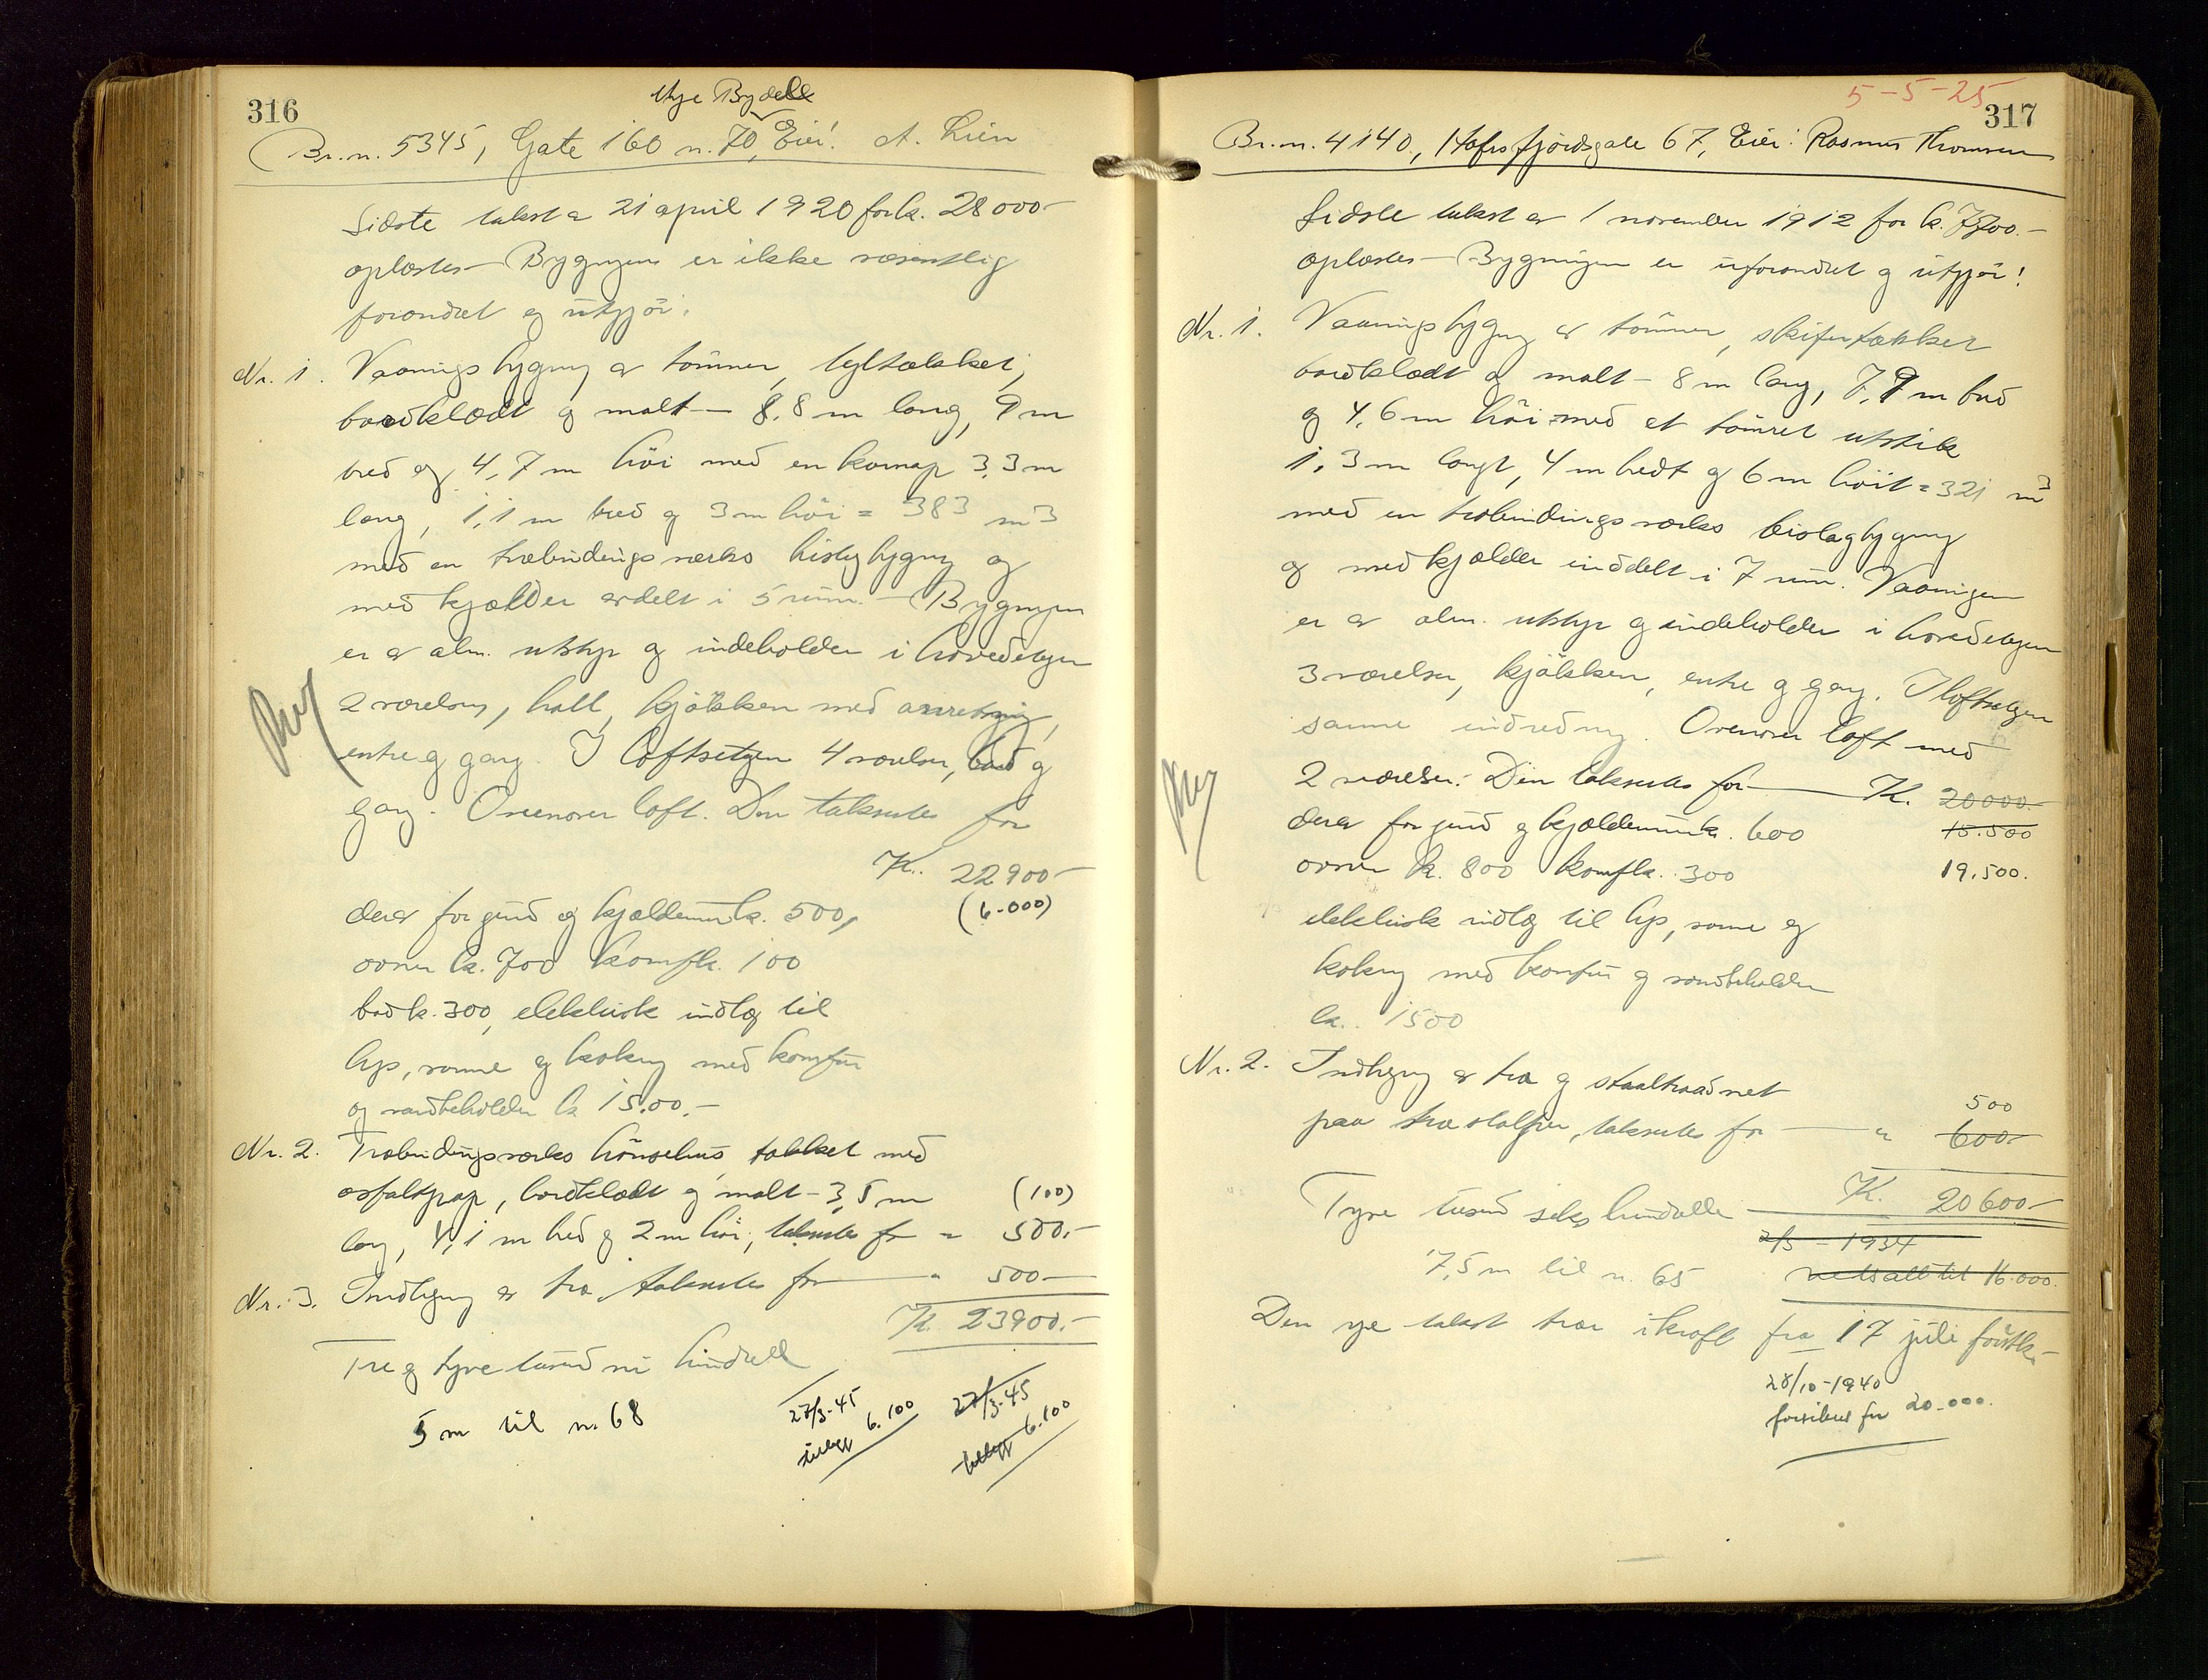 316
Mye Bydell
Br. n. 5345, Gate 160 n. 70, Eier: A. Lien
Sidste takst a 21 april 1920 for k. 28000.-
oplæstes - Bygnigen er ikke væsentlig
forandret og utgjör:
Nr. 1. Vaanigsbygnig a tömmer, tegltækket,
bordklædt og malt - 8,8 m lang, 9 m
bred og 4,7 m höi med en karnap 3,3 m
lang, 1,1 m bred og 3 m höi = 383 m3
med en træbindigsværks bislagbygnig og
med kjælder avdelt i 5 rum. - Bygnigen
er a alm. utstyr og indeholder i hovedetagen
2 værelser, hall, kjökken med anretnig,
entre og gang. I loftsetagen 4 værelser, bad og
gang. Ovenover loft. Den takseres for
K. 22900.-
derav for grund og kjældermur k. 500,
(6.000)
ovner k. 700 komf k. 100
bad k. 300, elektrisk indlæg til
lys, varme og kokning med komfur
og vandbeholder k 1500.-
Nr. 2. Træbindigsværks hönsehus, tækket med
asfaltpap, bordklædt og malt - 3,5 m (100)
lang, 4,1 m bred og 2 m höi, takseres for " 500.-
Nr. 3. Indhegnig a træ, takseres for " 500.-
K. 23900.-
Tre og tyve tusind ni hundrede
5 m til n. 68
27/3-45 27/3-45
tillegg 6.100 tillegg 6.100
5-5-25
317
Br. n. 4140, Hafrsfjordsgate 67, Eier: Rasmus Thomsen
Sidste takst av 1 november 1912 for k.
oplæstes - Bygnigen er uforandret og utgjör:
Nr. 1. Vaanigsbygnig a tömmer, skifertækket
bordklædt og malt - 8 m lang, 7,9 m bred
og 4,6 m höi med et tömret utstik
1,3 m langt, 4 m bredt og 6 m höit = 321 m3
med en træbindingsværks bislagbygnig
og med kjælder inddelt i 7 rum. Vaanigen
er a alm. utstyr og indeholder i hovedetagen
3 værelser, kjökken, entre og gang. I loftsetagen
samme indrednig. Ovenover loft med
2 værelser. Den takseres for K. 20000.-
derav for grund og kjældermur k. 600 15.500
ovner k. 800 komf k. 300 19.500.
elektrisk indlæg til lys, varme og
kokning med komfur og vandbeholder
k. 1500
Nr. 2. Indhegnig a træ og staaltraadnet
500
paa træstolper, takseres for " 600.-
K. 20600.-
Tyve tusind seks hundrede
2/5 - 1934
17,5 m til n. 65 nedsatt til 16.000.
Den nye takst træ i kraft fra 17 juli förstk.-
28/10-1940
forsikret for 20.000.